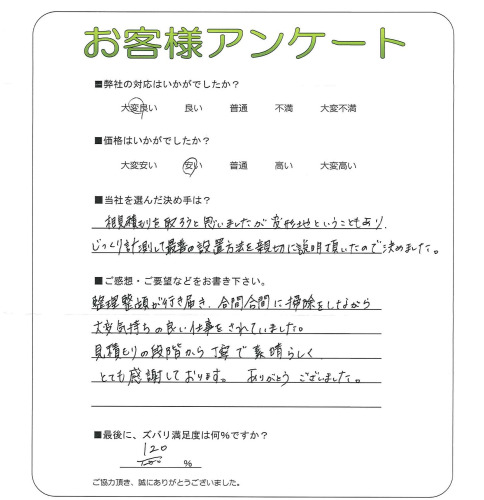 お客様アンケート
■弊社の対応はいかがでしたか？
大変良い 良い 普通 不満 大変不満
■価格はいかがでしたか？
大変安い 安い 普通 高い 大変高い
■当社を選んだ決め手は？
相見積もりを取ろうと思いましたが変形地ということもあり、
じっくり計測して最善の設置方法を親切に説明頂いたので決めました。
■ご感想・ご要望などをお書き下さい。
整理整頓が行き届き、合間合間に掃除をしながら
大変気持ちの良い仕事をされていました。
見積もりの段階から丁寧で素晴らしく
とても感謝しております。 ありがとうございました。
■最後に、ズバリ満足度は何%ですか？
120
%
ご協力頂き、誠にありがとうございました。